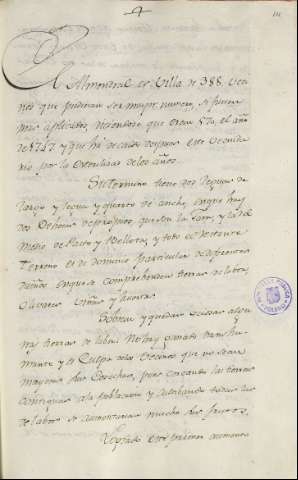 Almendral es Villa de 388. Veci
nos que pudieran ser mayor numero, si fueran
mas aplicados, diciendose que eran 570, el año
de 1747 y que ha decaido despues este Vecinda
rio por la esterilidad de los años.
Su termino tiene dos leguas de
largo y legua y quarto de ancho, en que hay
dos Dehesas de propios, que son la y la de
medio de Pasto y Bellota, y todo el restante
terreno es de dominio particular de diferentes
dueños en que se comprehenden tierras de labor,
Olivares Viñas y huertas.
Sobran y quedan escasas algu
nas tierras de labor. No hay ganado trans hu
mante y es culpa de los Vecinos que no sean
mayores sus Cosechas, pues cercando las tierras
contiguas a la poblacion y cultivando todas las
de labor se aumentarian mucho sus frutos.